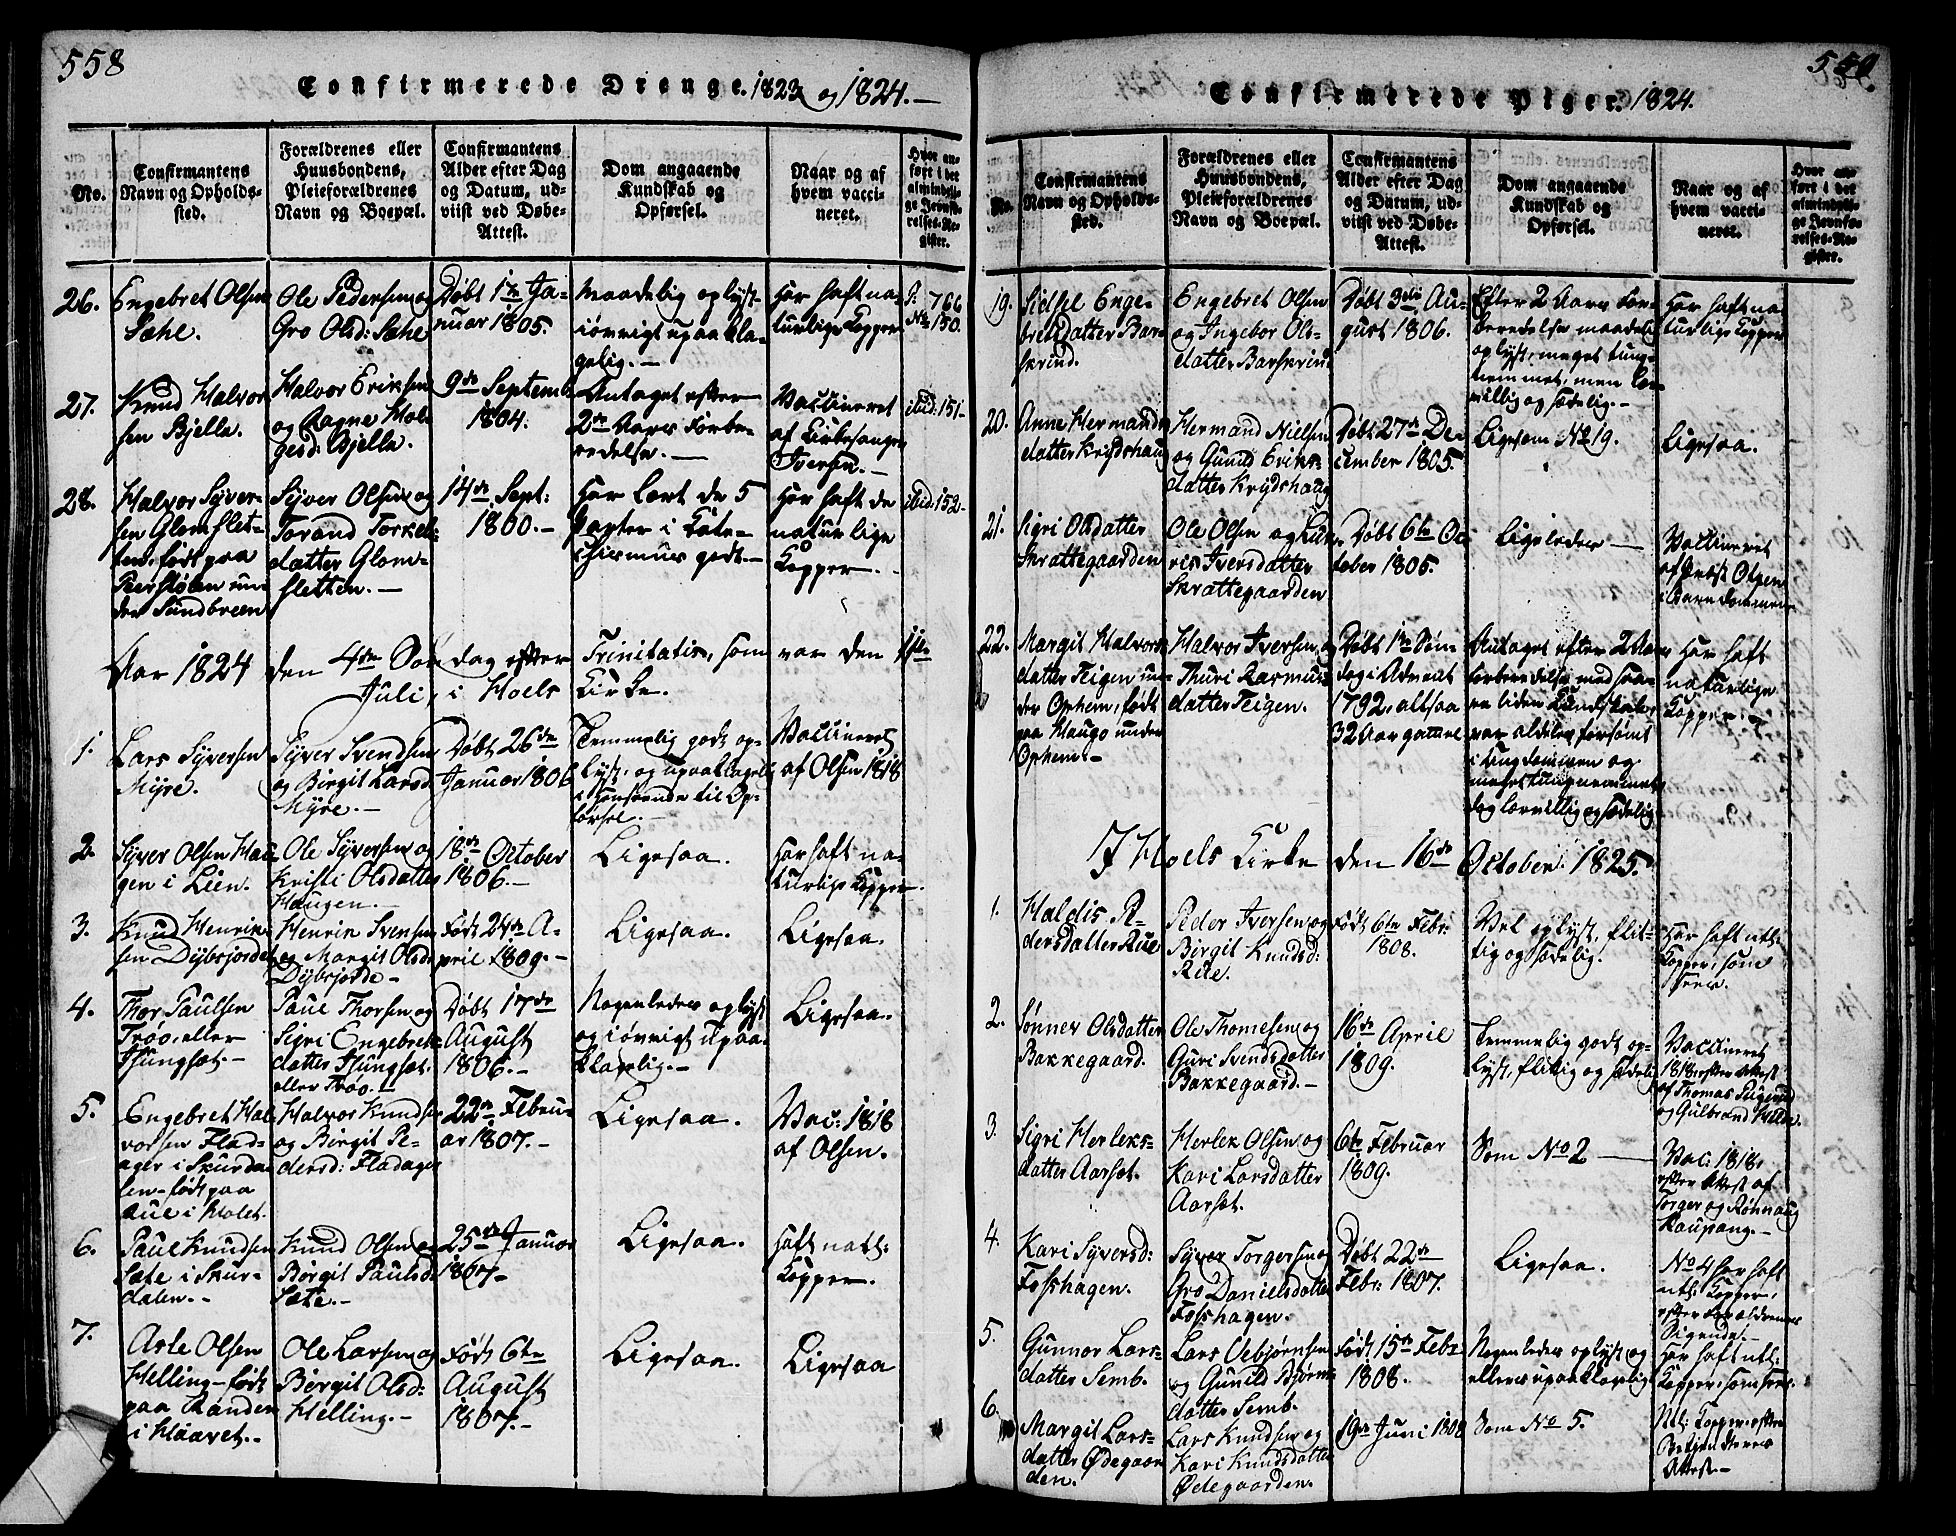 558
Confirmerede Drenge. 1823 og 1824.
No.
Confirmantens Navn og Opholdssted.
Forældrenes eller Huusbondens, Pleieforældrenes Navn og Boepæl.
Confirmantens Alder efter Dag og Datum, udviist ved Døbe-Attest.
Dom angaaende Kundskab og Opførsel.
Naar og af hvem vaccineret.
Hvor anført i det almindelige Jevnførelses-Register.
26. Engebret Olsen
Sæhe.
Ole Pedersen og
Gro Olsd: Sæhe
Døbt 1te Ja-
nuar 1805.
Maadelig oplyst
iøvrigt upaakla-
gelig.-
Har haft na-
turlige Kopper
P. 766
No 150.
27. Knud Halvor
sen Bjella.
Halvor Eriksen
og Aagne Hol-
gesd: Bjella.
9de Septemb:
1804.
Antaget efter
2de Aars Forbe-
redelse.-
Vaccineret
af Kirkesanger
Iversen.-
ibid: 151.
28. Halvor Syver-
sen Glomslet-
ten, født paa
under Sundbreen
Syver Olsen og
Torand Torkels-
datter Glom-
sletten.-
14de Sept:
1800.-
Har lært de 5
Parter i Kate-
chismus godt.-
Har haft de
naturlige
Kopper.
ibid: 152.
Aar 1824 den 4de Søndag efter Trinitatis, som var den
Juli, i Hoels Kirke.
1. Lars Syversen
Myre.
Syver Svendsen
og Birgit Larsd:
Myre.-
Døbt 26de
Januar 1806
Temmelig godt op-
lyst, og upaaklagelig
i Henseende til Op-
førsel.
Vaccineret
af Olsen 1818
2. Syver Olsen Hau-
gen i Lien.
Ole Syversen og
Kristi Olsdatter
Haugen.-
18de October
1806.-
Ligesaa.
Har haft na-
turlige Kopper.
3. Knud Henrik-
sen Dybsjorde
Henrik Svensen
og Margit Olsd:
Dybsjorde-
Født 24de A-
pril 1809.-
Ligesaa.
Ligesaa.
4. Thor Paulsen
Trøo, eller
Thungset.-
Paul Thorsen og
Sigri Engebret-
datter Thungset.
eller Trøo.-
Døbt 17de
August
1806.-
Nogenledes oplyst
og iøvrigt upaa-
klagelig.-
Ligesaa.
5. Engebret Hal-
vorsen Flad-
ager i Skurda-
len- født paa
Rue i Holet.
Halvor Knudsen
og Birgit Pe-
dersd: Fladager
22de Febru-
ar 1807.-
Ligesaa.
Vac: 1818
af Olsen.
6. Paul Knudsen
Sæte i Skur-
dalen.-
Knud Olsen og
Birgit Paulsd:
Sæte.-
25de Januar
1807-
Ligesaa.
Haft natl:
Kopper.
7. Asle Olsen
Helling- født
paa Randen
i Haavet.-
Ole Larsen og
Birgit Olsd:
Helling.-
Født 6te
August
1807.-
Ligesaa.
Ligesaa
559.
Confirmerede Piger. 1824.
No.
Confirmantens Navn og Opholdssted.
Forældrenes eller Huusbondens, Pleieforældrenes Navn og Boepæl.
Confirmantens Alder efter Dag og Datum, udviist ved Døbe-Attest.
Dom angaaende Kundskab og Opførsel.
Naar og af hvem vaccineret.
Hvor anført i det almindelige Jevnførelses-Register.
19. Sidsel Enge-
bretsdatter Bar-
skrind.
Engebret Olsen
og Ingebor Ols-
datter Barskrind
Døbt 3die Au-
gust 1806.
Efter 2 Aars For-
beredelse maadelig
oplyst, meget tung-
nemmet, men lær-
villig og sædelig.-
Har haft na-
turlige Kopper
20. Anne Hermands-
datter Krydshaug
Hermand Nielsen
og Gunild Eriks-
datter Krydshaug
Døbt 27de De-
cember 1805.
Ligesom No 19.
Ligesaa.
21. Sigri Olsdatter
Skrattegaarden
Ole Olsen og
Iversdatter
Skrattegaarden
Døbt 6te Oc-
tober 1805.
Ligeledes-
Vaccineret
af Præst Olsen
i Barndommen
22. Margit Halvors-
datter Teigen un-
der Opheim, født
paa Haugo under
Opheim.-
Halvor Iversen og
Thuri Rasmus-
datter Teigen.
Døbt 1te Søn-
dag i Advent
1792, altsaa
32 Aar gammel
Antaget efter 2 Aars
Forberedelse med saa-
re liden Kundskab,
var aldeles forsømt
i Ungdommen og
meget tungnemmet
dog lærvillig og sædelig
Har haft
naturlige
Kopper.
I Hoels Kirke den 16de October. 1825.
1. Haldis P-
dersdatter Rue
Peder Iversen og
Birgit Knudsd:
Rue.
Født 6te Febr:
1808.
Vel oplyst, flit-
tig og sædelig.
Har haft natl:
Kopper, som
sees.
2. Sønner Olsdatter
Bakkegaard.
Ole Thomesen og
Guri Svendsdatter
Bakkegaard.-
16de April
1809.
Temmelig godt op-
lyst, flittig og sædelig
Vaccineret
1818, efter Attest
af Thomas
og Gulbrand
3. Sigri Herleks-
datter Aarset.
Herlek Olsen og
Kari Larsdatter
Aarset.
6te Februar
1809.
Som No 2
Vac: 1818.
efter Attest af
Torger og Rønnaug
Raupang.-
4. Kari Syversd:
Fosshagen.
Syver Torgersen og
Gro Danielsdatter
Fosshagen.
Døbt 22de
Febr: 1807.
Ligesaa.
No 4 har haft
natl: Kopper,
efter Forældrenes
Sigende.-
5. Gunnor Lars-
datter Semb.
Lars Asbjørnsen
og Gunild Bjørns-
datter Semb.
Født 15de Febr
1808.
Nogenledes oplyst og
ellers upaaklagelig
Har haft natl:
Kopper, som sees.
6. Margit Lars-
datter Ødegaar-
den.
Lars Knudsen og
Kari Knudsdatter
Ødegaarden.
19de Juni 1808
Som No 5.
Natl: Kopper, efter
Attest.-